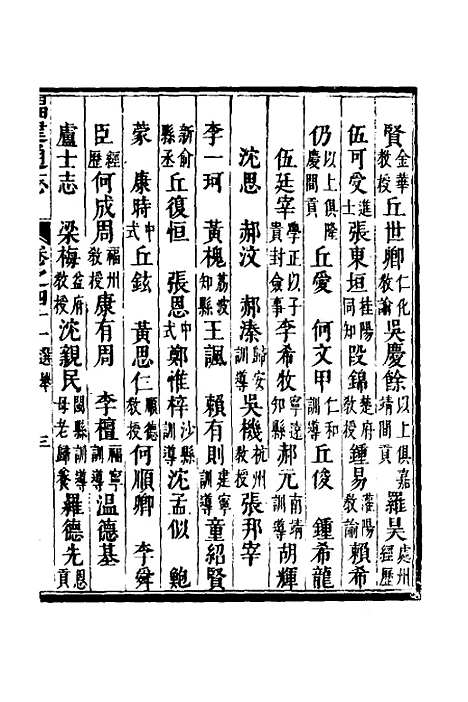 賢金華教授丘世卿仁化教諭吳慶餘以上俱嘉靖間貢羅昊處州經歷
伍可受進士張東垣桂陽同知段錦楚府教授鍾易瀘陽教諭賴希
仍以上俱隆慶間貢丘愛何文甲仁和訓導丘俊鍾希龍
伍廷宰學正以子貴封僉事李希牧寧遠知縣郝元南靖訓導胡輝
沈思郝汶郝溱歸安訓導吳機杭州教授張邦宰
李一珂黃槐荔波知縣王諷賴有則建寧訓導童紹賢
新俞縣丞丘復恒張恩中式鄭惟梓沙縣訓導沈孟似鮑
蒙康時中式丘鉉黃思仁順德教授何順卿李舜
臣經歷何成周福州教授康有周李檀福寧訓導溫德基
盧士志梁梅益府教授沈親民閩縣訓導母老歸養羅德先恩貢
卷之四十一選舉三